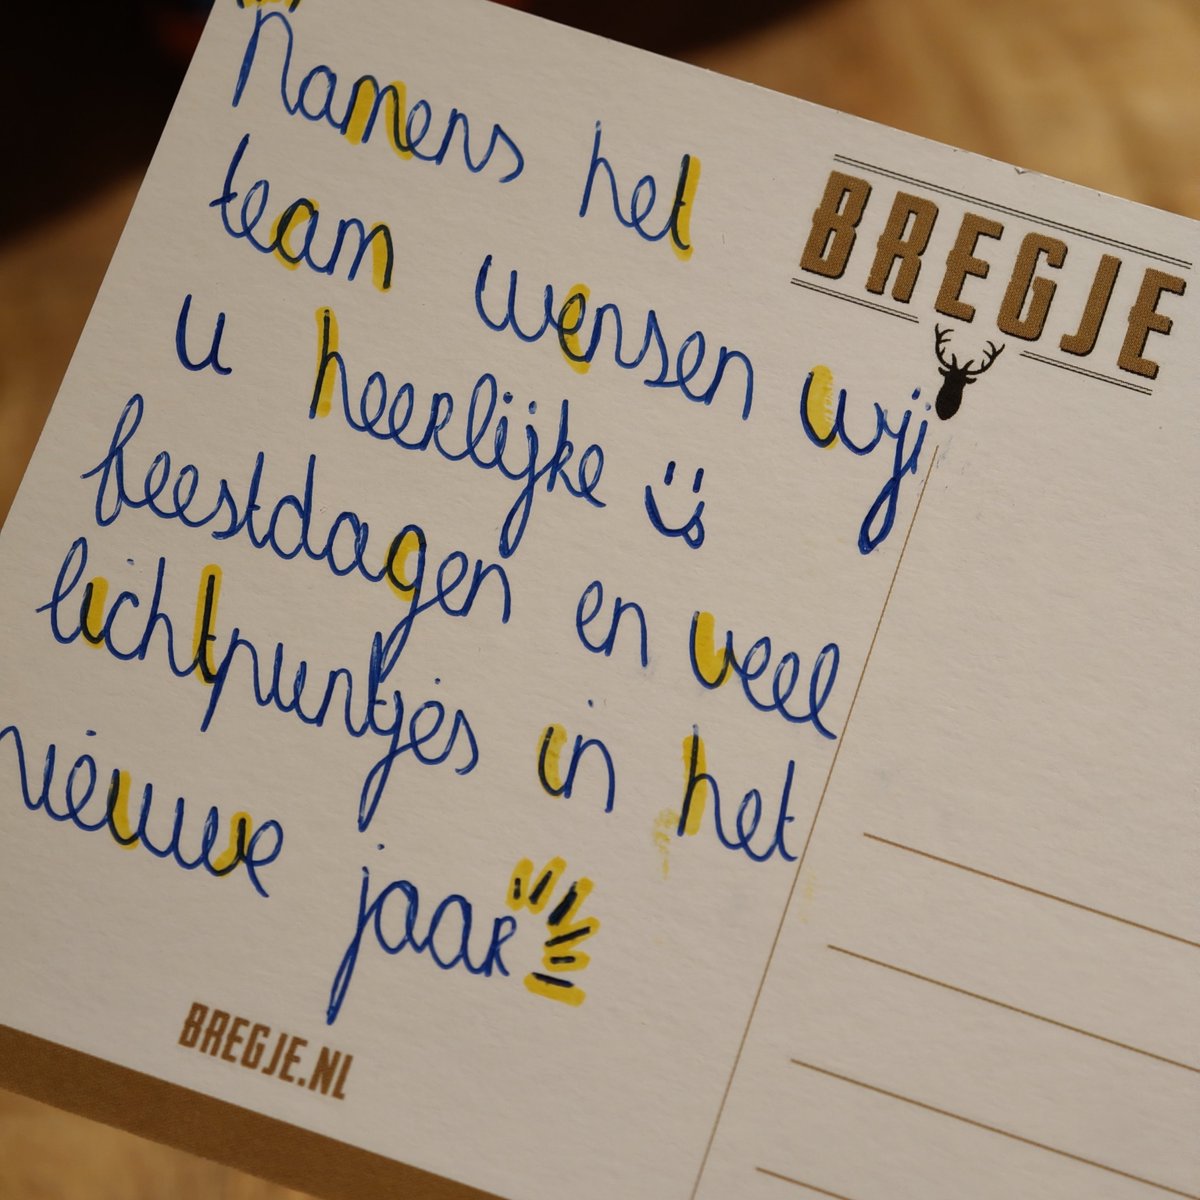 Namens het
team wensen wij
u heerlijke
feestdagen en veel
lichtpuntjes in het
nieuwe jaar
BREGJE
BREGJE.NL